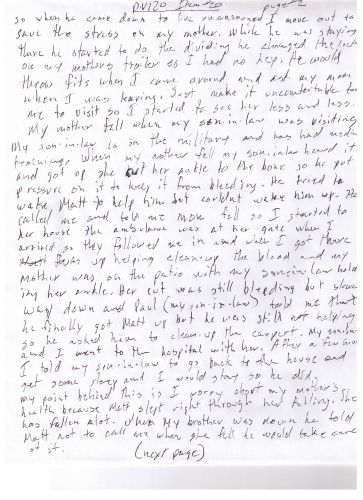 DV120 Item page 2
so when he come down to live unannounced I move out to
save the stress on my mother. While he was staying
there he started to do the dividing he changed the locks
on my mothers trailer so I had no key. He would
throw fits when I came around, and ask my mom
when I was leaving. Just make it uncomfortable for
me to visit so I started to see her less and less.
My mother fell when my son-in-law was visiting
My son-in-law is in the military and has had medic
training. When my mother fell my son-in-law heard it
and got up she cut her ankle to the bone so he put
pressure on it to keep it from bleeding. He tried to
wake Matt to help him but couldnt wake him up. He
called me and told me mom fell so I started to
her house the ambulance was at her gate when I
arrived so they followed me in and when I got there
was up helping clean-up the blood and my
mother was on the patio with my son-in-law hold
ing her ankle. Her cut was still bleeding but slowed
way down and Paul (my son-in-law) told me that
he finally got Matt up but he was still not helping
so he asked him to clean-up the carport. My son-in-
and I went to the hospital with her. After a few hours
I told my son-in-law to go back to the house and
get some sleep and I would stay so he did.
my point behind this is I worry about my mother's
health because Matt slept right through her falling. She
has fallen alot. When my brother was down he told
Matt not to call me when she fell he would take care
of it. (next page)